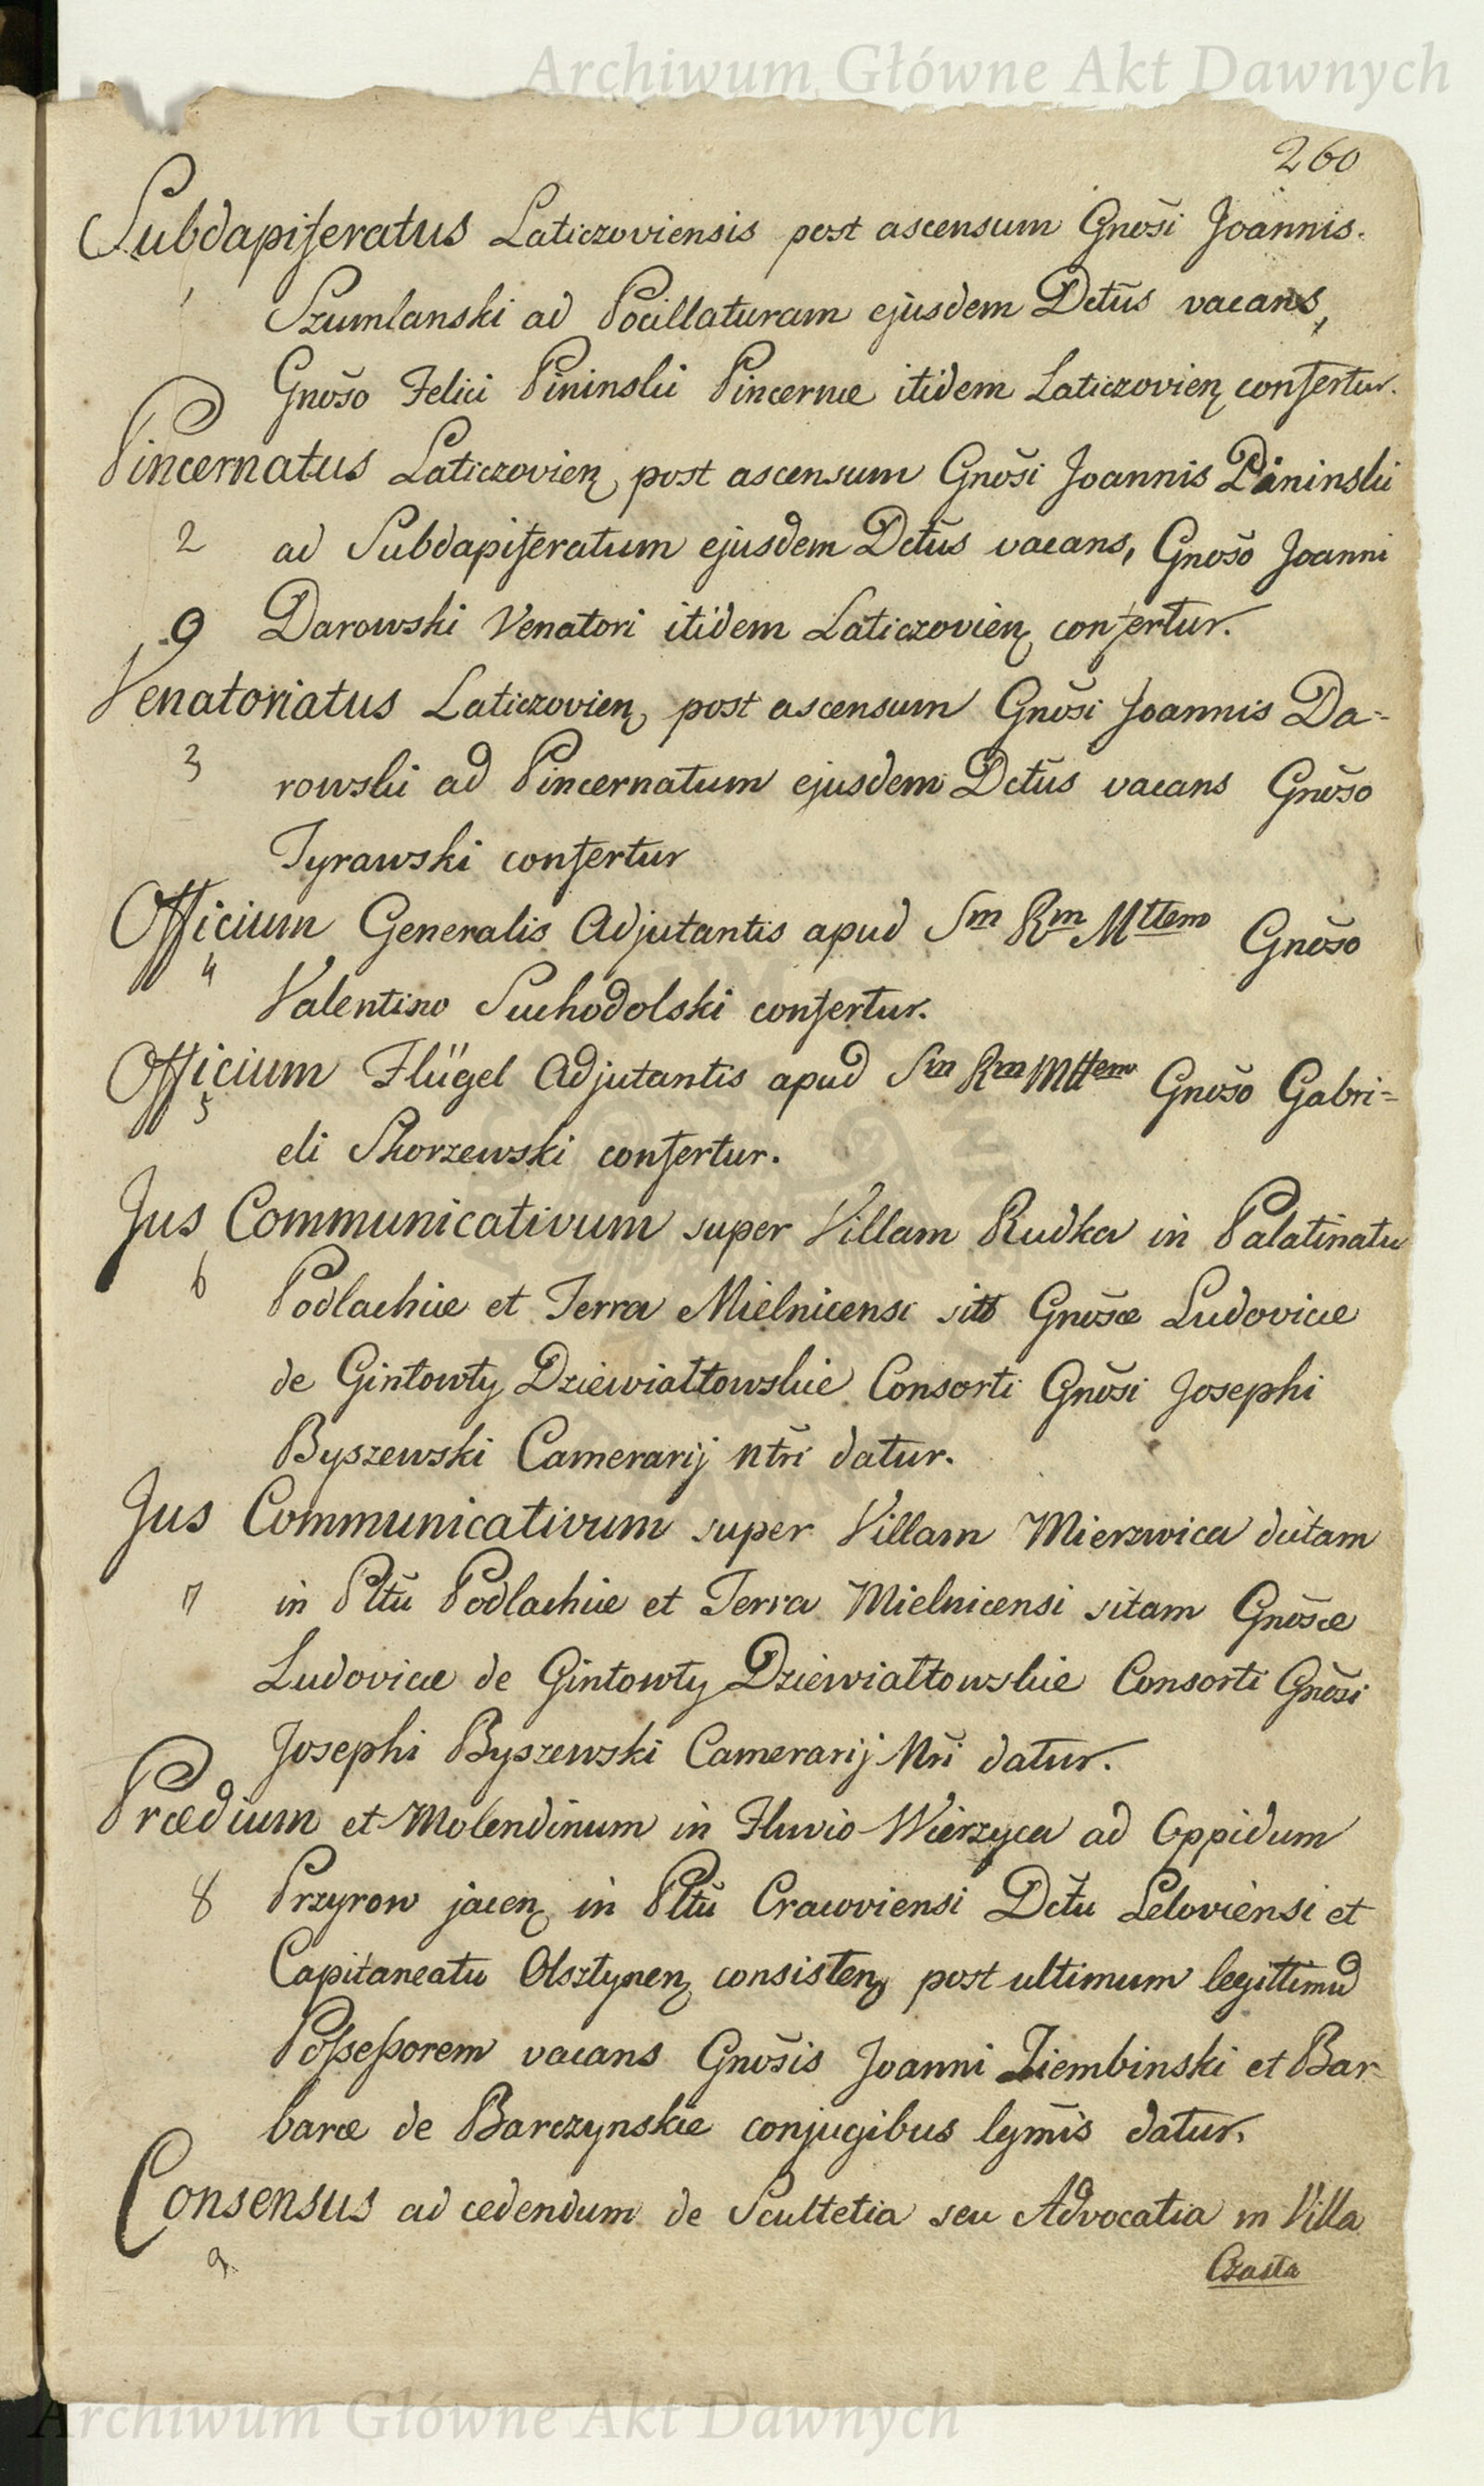 Archiwum Główne Akt Dawnych
260
Subdapiferatus Laticzoviensis post ascensum Gnõsi Joannis
1 Szumlanski ad Pocillaturam ejusdem Dctũs vacans,
Gnõso Felici Pininski Pincernæ itidem Laticzovien̨ confertur.
Pincernatus Laticzovien̨ post ascensum Gnõsi Joannis Pininski
2 ad Subdapiferatum ejusdem Dctũs vacans, Gnõso Joanni
Darowski Venatori itidem Laticzovien̨ confertur.
Venatoriatus Laticzovien̨ post ascensum Gnõsi Joannis Da=
3 rowski ad Pincernatum ejusdem Dctũs vacans Gnõso
Tyrawski confertur
Officium Generalis Adjutantis apud Sm Rm Mttem Gnõso
4 Valentino Suchodolski confertur.
Officium Flügel Adjutantis apud Sm Rm Mttem Gnõso Gabri=
5 eli Skorzewski confertur.
Jus Communicativum super Villam Rudka in Palatinatu
6 Podlachiæ et Terra Mielnicensi Gnõsæ Ludovicæ
de Gintowty Dziewiałtowskie Consorti Gnõsi Josephi
Byszewski Camerarij ntr̃i datur.
Jus Communicativum super Villam Mierzwica dictam
7 in Pltũ Podlachiæ et Terra Mielnicensi sitam Gnõsæ
Ludovicæ de Gintowty Dziewiałtowskie Consorti Gnõsi
Josephi Byszewski Camerarij Nr̃i datur.
Prædium et Molendinum in Fluvio Wierzyca ad Oppidum
8 Przyrow jacen̨ in Pltũ Cracoviensi Dctũ Leloviensi et
Capitaneatu Olsztynen̨ consisten̨ post ultimum legittimũ
Poßeßorem vacans Gnõsis Joanni Ziembinski et Bar
baræ de Barczynskie conjugibus lgym̃is datur.
Consensus ad cedendum de Scultetia seu Advocatia in Villa
9
Czasta
Archiwum Główne Akt Dawnych